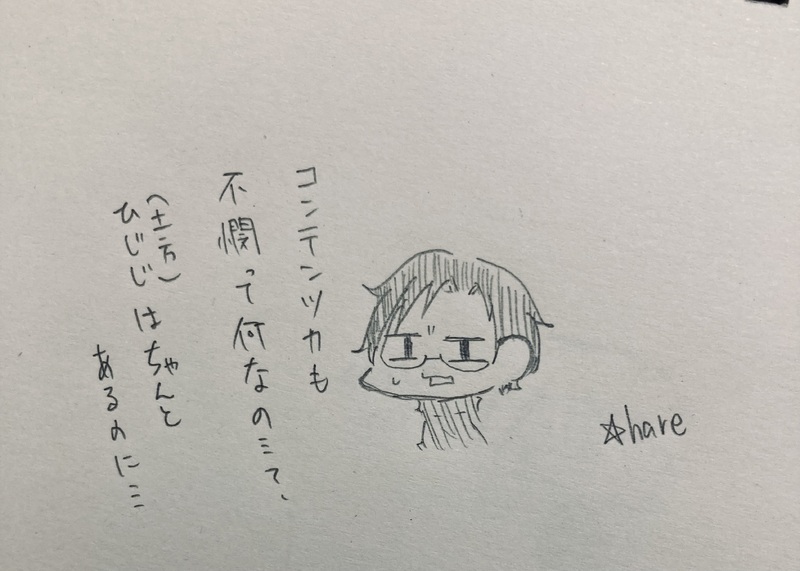 コンテンツカも
不憫って何なのミて、
(土方)
ひじじはちゃんと
あるのに…
☆hare